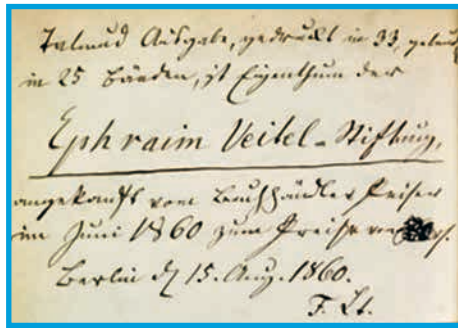 Talmud Ausgabe, gedruckt in 33, gebund
in 25 Bänden, ist Eigenthum der
Ephraim Veitel-Stiftung,
angekauft vom Buchhändler
im Juni 1860 zum Preise von
Berlin d 15. Aug. 1860.
F. Lt.